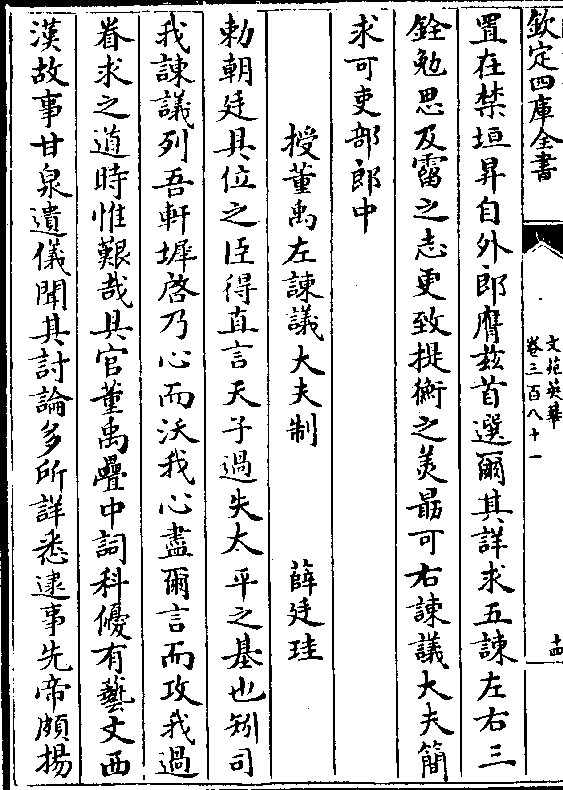 欽定四庫全書
文苑英華
卷三百八十一
十四
置在禁垣昇自外郎膺兹首選爾其詳求五諫左右三
銓勉思及霤之志更致提衡之美勗可右諫議大夫簡
求可吏部郎中
授董禹左諫議大夫制 薛廷珪
勅朝廷具位之臣得直言天子過失太平之基也矧司
我諫議列吾軒墀啓乃心而沃我心盡爾言而攻我過
眷求之道時惟艱哉具官董禹疊中詞科優有藝文西
漢故事甘泉遺儀聞其討論多所詳悉逮事先帝頗揚